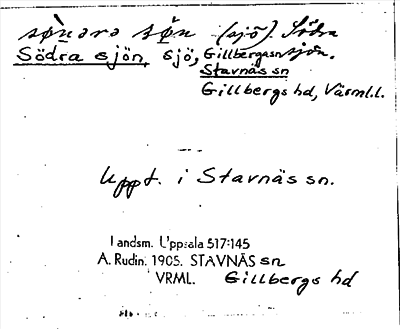 sønərə søn (sjö). Södra
Södra sjön, sjö, Gillbergasn sjön.
Stavnäs sn
Gillbergs hd, Värml.l.
Uppt. i Stavnäs sn.
Landsm. Uppsala 517:145
A. Rudin. 1905. STAVNÄS sn
VRML. Gillbergs hd